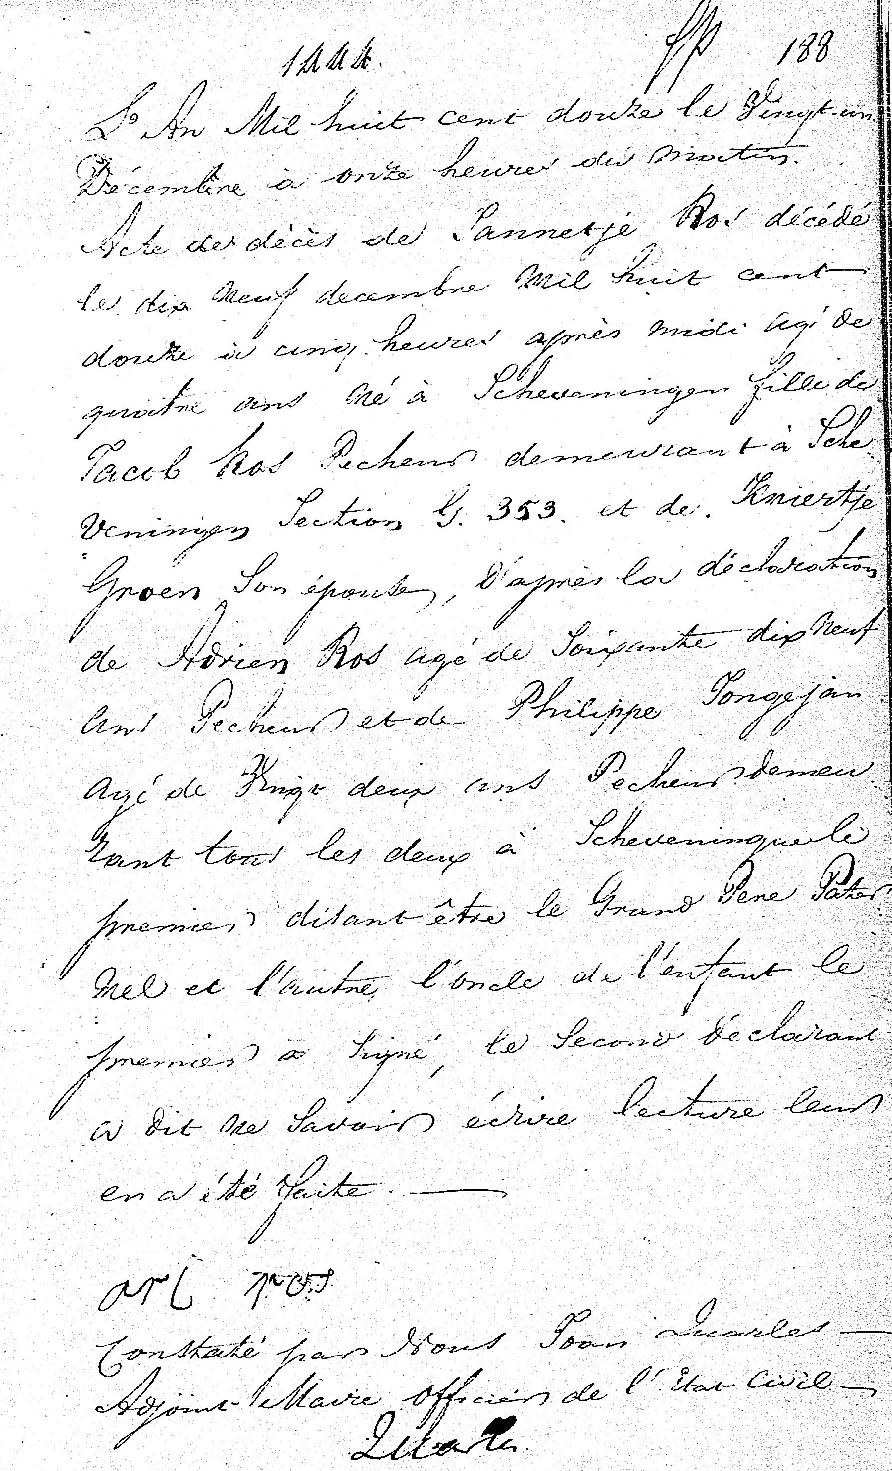 1444. 188
L'An Mil huit cent douze le Vingt-un
Décembre à onze heures du matin.
Acte de décès de Jannetje Ros décédé
le dix Neuf decembre Mil huit cent
douze à cinq heures après midi agé de
quatre ans Né à Scheveningen fille de
Jacob Ros Pecheur demeurant à Sche
veningen Section G. 353. et de Kniertje
Groen Son épouse, d'après la déclaration
de Adrien Ros agé de Soixante dix Neuf
ans Pecheur et de Philippe Jongejan
agé de Vingt deux ans Pecheur demeu
rant tous les deux à Scheveningue le
premier disant être le Grand Pere Pater
Nel et l'autre, l'oncle de l'enfant le
premier a Signé, le Second déclarant
a dit Ne Savoir écrire lecture leur
en a été faite.
ari ros
Constaté par Nous Joan Quarles
Adjoint Maire officier de l'Etat Civil
Quarles